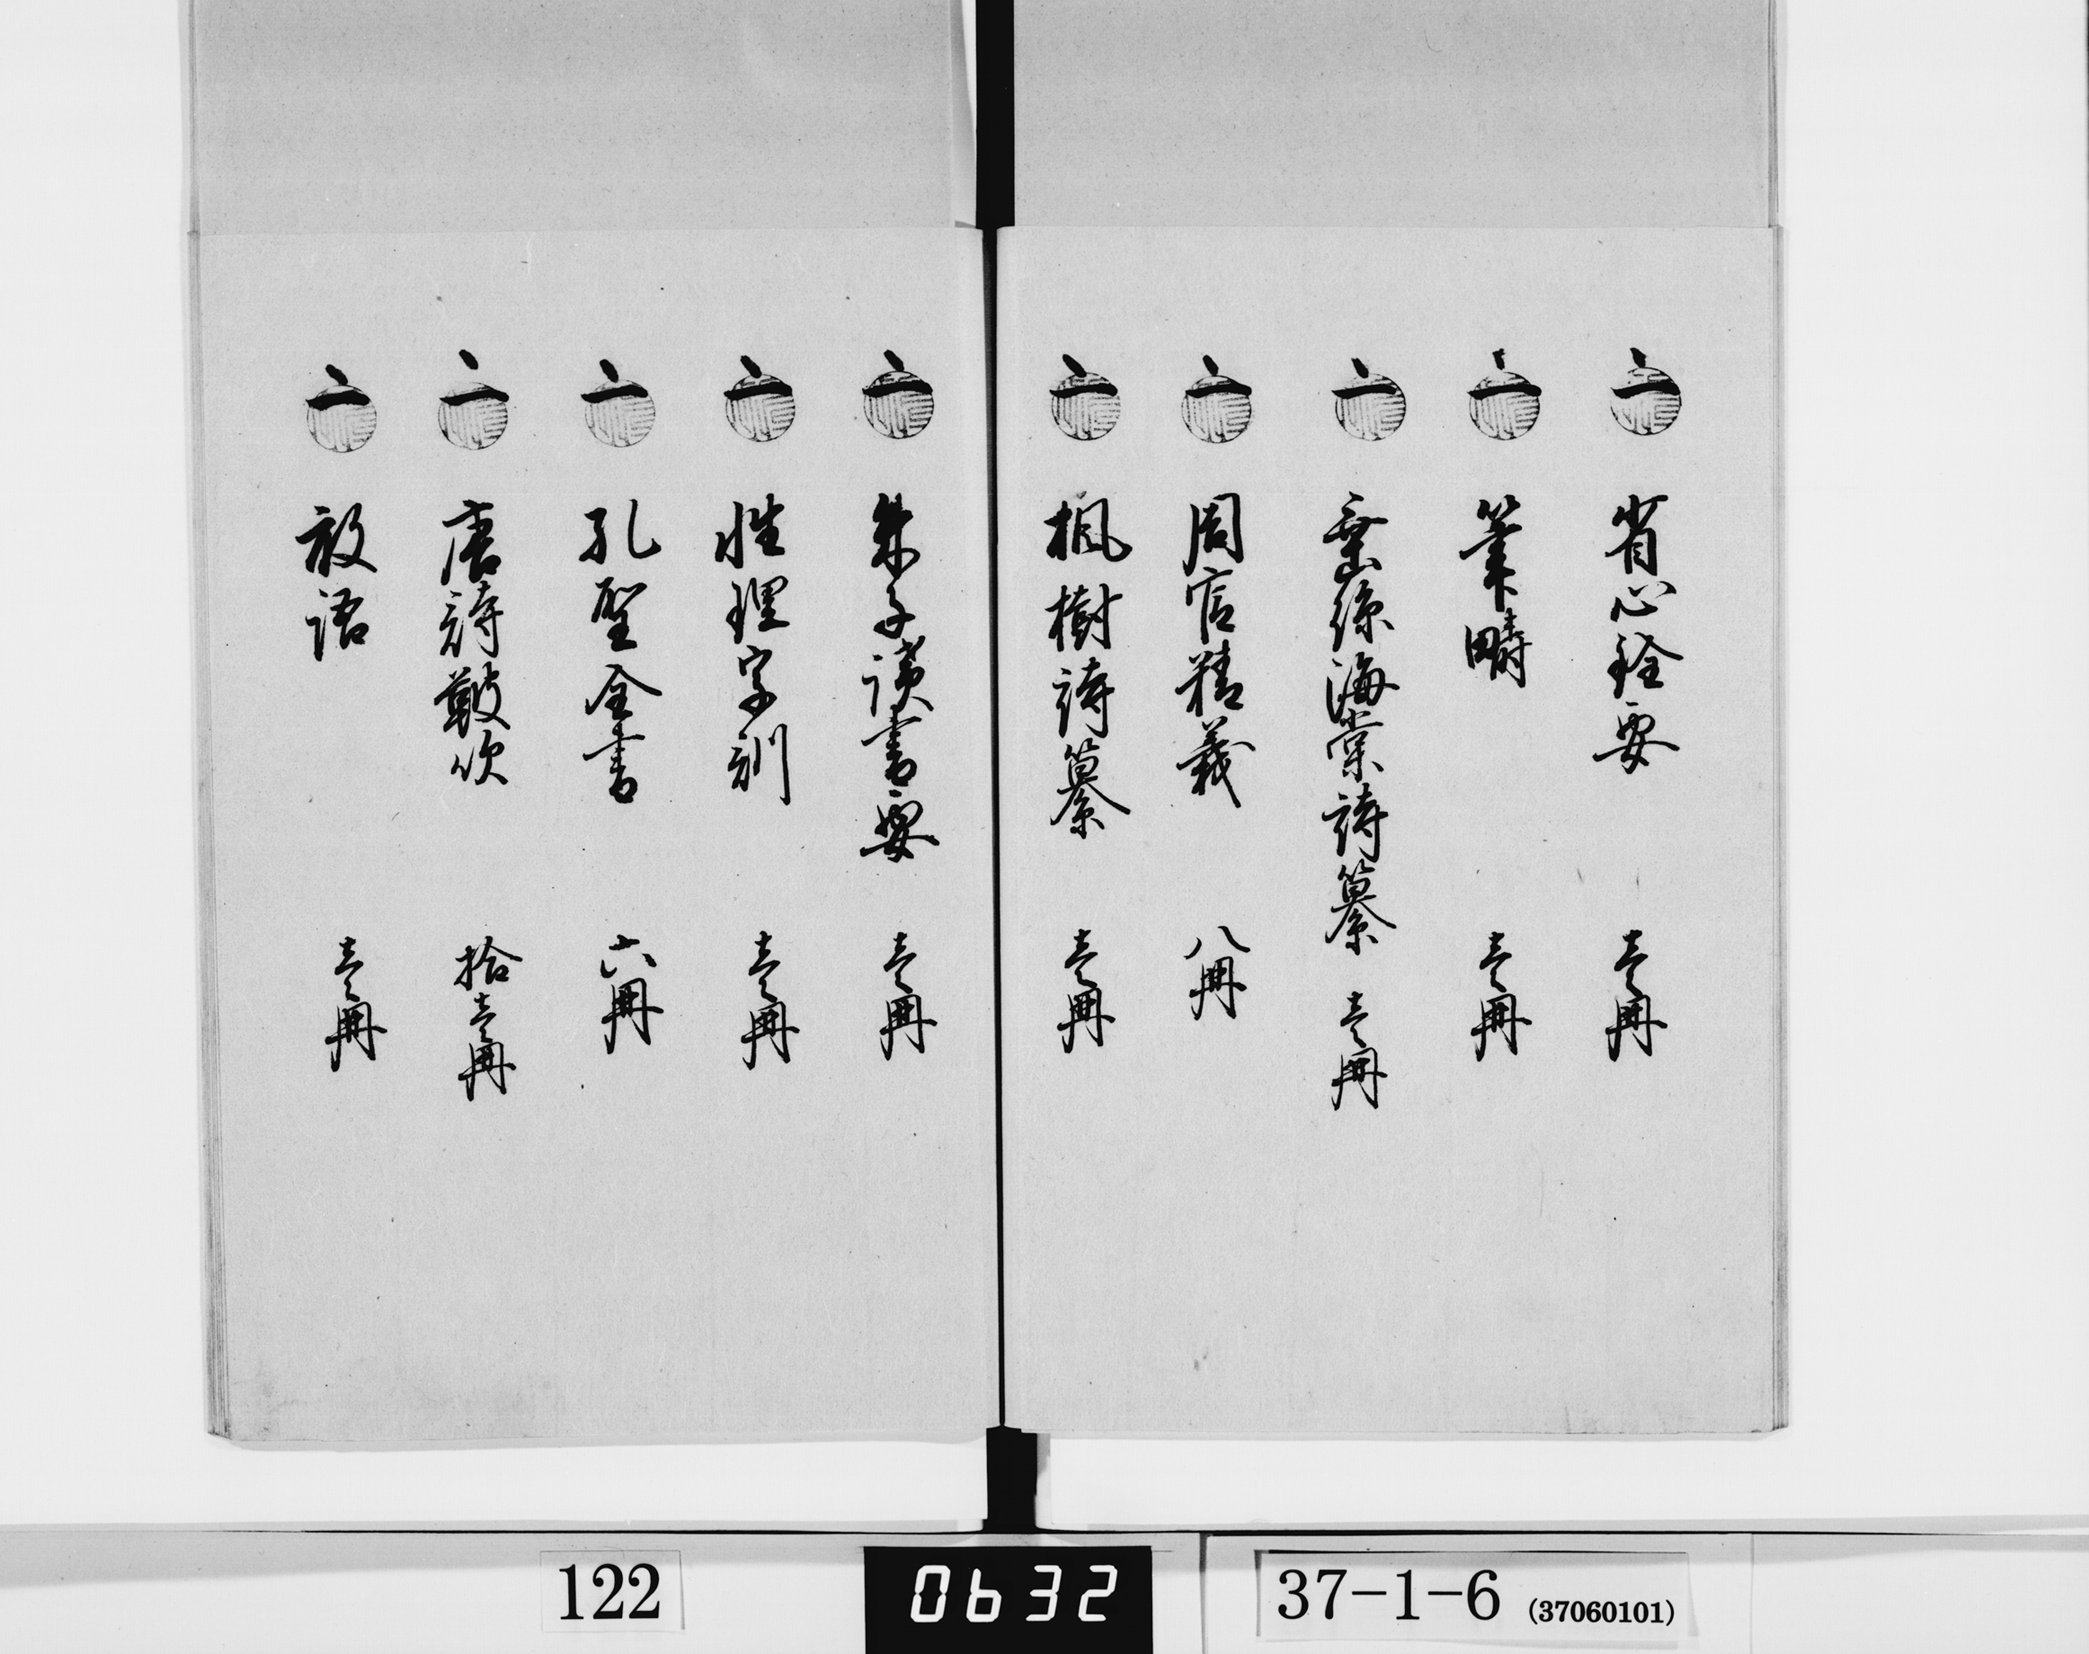 一 省心銓要 壹冊
一 筆疇 壹冊
一 垂絲海棠詩纂 壹冊
一 周官精義 八冊
一 楓樹詩纂 壹冊
一 朱子讀書要 壹冊
一 性理字訓 壹冊
一 孔聖全書 六冊
一 唐詩鼓吹 拾壹冊
一 語 壹冊
122
0632
37-1-6 (37060101)